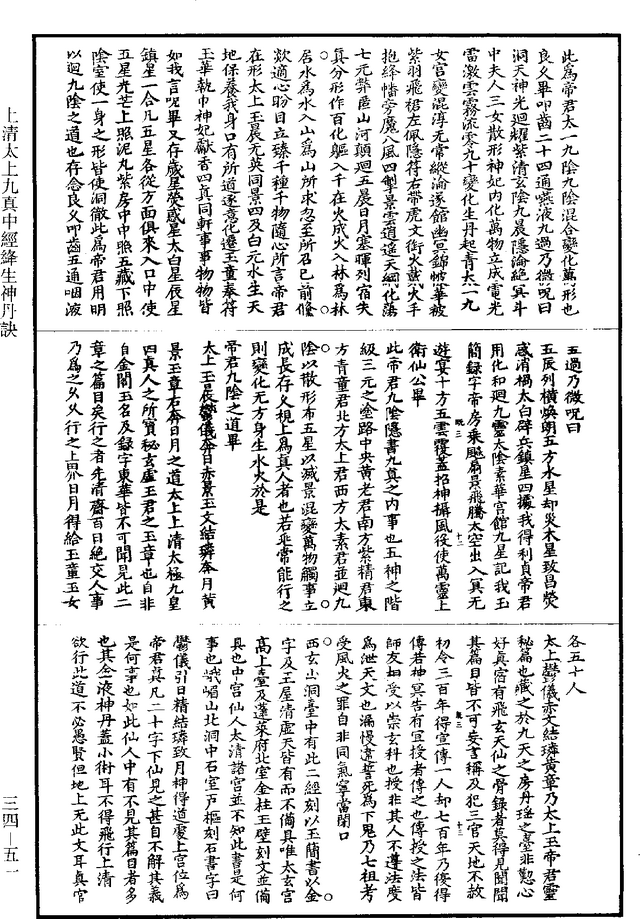 此爲帝君太一九陰九陰混合變化萬形也
良久畢叩齒二十四通嚥液九過乃微呪曰
洞天神光迴耀紫清玄陰九晨隱淪絶冥斗
中夫人三女散形神妃内化萬物立成電光
雷激雲霧流零九十變化生丹起青太一九
女官變混淳无常縱淪遂館幽冥錦帔華被
紫羽飛裙左佩隱符右帶虎文銜火戴火手
抱絳幡旁魔入風四掣景雲逍遥天網化蕩
七元弊匿山河顛迴五晨日月塞暉列宿失
真分形作百化軀入千在火成火入林爲林
居水爲水入山爲山所求忽至所召已前倏
欻適心盼目立臻千種千物隨心所言帝君
在形太上玉晨无英同景四及白元水生天
地保養我身口有所道遂意化遷玉童奉符
玉華執巾神妃獻香四真同軿事事物物皆
如我言呪畢又存歲星熒惑星太白星辰星
鎮星一合凡五星各從方面俱來入口中使
五星光芒上照泥丸紫房中中照五藏下照
陰室使一身之形皆使洞徹此爲帝君用明
以迴九陰之道也存念良久叩齒五通咽液
五過乃微呪曰
五辰列横煥朗五方水星却災木星致昌熒
惑消禍太白辟兵鎮星四據我得利貞帝君
用化和迴九靈太陰素華宫館九星記我玉
簡録字帝房乘飇扇景飛騰太空出入冥无
遊宴十方五雲覆蓋招神攝風役使萬靈上
衛仙公畢
此帝君九陰隱書九真之内事也五神之階
級三元之塗路中央黄老君南方紫精君東
方青童君北方太上君西方太素君並迴九
陰以散形布五星以滅景混變萬物觸事立
成長存久視上爲真人者也若乘常能行之
則變化无方身生水火於是
帝君九陰之道畢
太上玉晨鬱儀奔日赤景玉文結璘奔月黄
景玉章右奔日月之道太上上清太極九皇
四真人之所寳秘玄虚玉君之玉章也自非
自金閣玉名及録字東華皆不可聞見此二
章之篇目矣行之者先清齋百日絶交人事
乃爲之久久行之上昇日月得給玉童玉女
各五十人
太上鬱儀赤文結璘黄章乃太上玉帝君靈
秘篇也藏之於九天之房丹瑶之臺非懃心
好真宿有飛玄天仙之骨録者莫得見聞聞
其篇目皆不可妄書稱及犯三官天地不赦
初令三百年得宣傳一人却七百年乃復得
傳若神冥告有宜授者傳之也傳授之法皆
師友相受以崇玄科也授非其人不遵法度
爲泄天文也漏慢違誓死爲下鬼乃七祖考
受風火之罪自非同氣寧當閉口
西玄山洞臺中有此二經刻以玉簡書以金
字及王屋清虚天皆有而不備具唯太玄宫
高上臺及蓬萊府北室金柱玉壁刻文並備
具也中宫仙人太清諸宫並不知此書是何
事也峨嵋山北洞中石室户樞刻石書字曰
鬱儀引日精結璘致月神得道處上宫位爲
帝君真凡二十字下仙見之甚自不解其義
是何等事也如此仙人中有不見其篇目者多
也其金液神丹蓋小術耳不得飛行上清
欲行此道不必愚賢但地上无此文耳真官
上清太上九真中經絳生神丹訣
三四—五一